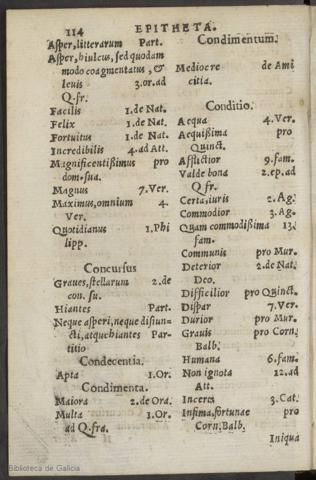 114 EPITHETA.
Asper, litterarum Part.
Asper, hiulcus, sed quodam
modo coagmentatus, &
leuis 3. or. ad
Q. fr.
Facilis 1. de Nat.
Felix 1. de Nat.
Fortuitus 1. de Nat.
Incredibilis 4. ad Att.
Magnificentißimus pro
dom. sua.
Magnus 7. Ver.
Maximus, omnium 4.
Ver.
Quotidianus 1. Phi
lipp.
Concursus
Graues, stellarum 2. de
con. su.
Hiantes Part.
Neque asperi, neque disiun-
cti, atque hiantes Par-
titio
Condecentia.
Apta 1. Or.
Condimenta.
Maiora 2. de Ora.
Multa 1. Or.
ad Q. fra.
Condimentum.
Mediocre de Ami
citia.
Conditio.
Aequa 4. Ver.
Aequißima pro
Quinct.
Afflictior 9. fam.
Valde bona 2. ep. ad
Q. fr.
Certa, iuris 2. Ag.
Commodior 3. Ag.
Quam commodißima 13.
fam.
Communis pro Mur.
Deterior 2. de Nat.
Deo.
Difficilior pro Quinct.
Dispar 7. Ver.
Durior pro Mur.
Grauis pro Corn.
Balb.
Humana 6. fam.
Non ignota 12. ad
Att.
Incerta 3. Cat.
Infima, fortunae pro
Corn. Balb.
Iniqua
Biblioteca de Galicia